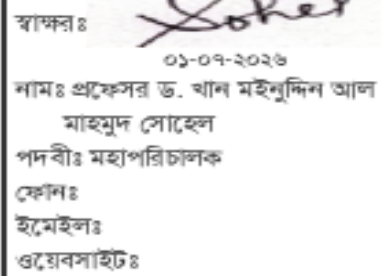 স্বাক্ষরঃ Sohel
০১-০৭-২০২৬
নামঃ প্রফেসর ড. খান মইনুদ্দিন আল
মাহমুদ সোহেল
পদবীঃ মহাপরিচালক
ফোনঃ
ইমেইলঃ
ওয়েবসাইটঃ